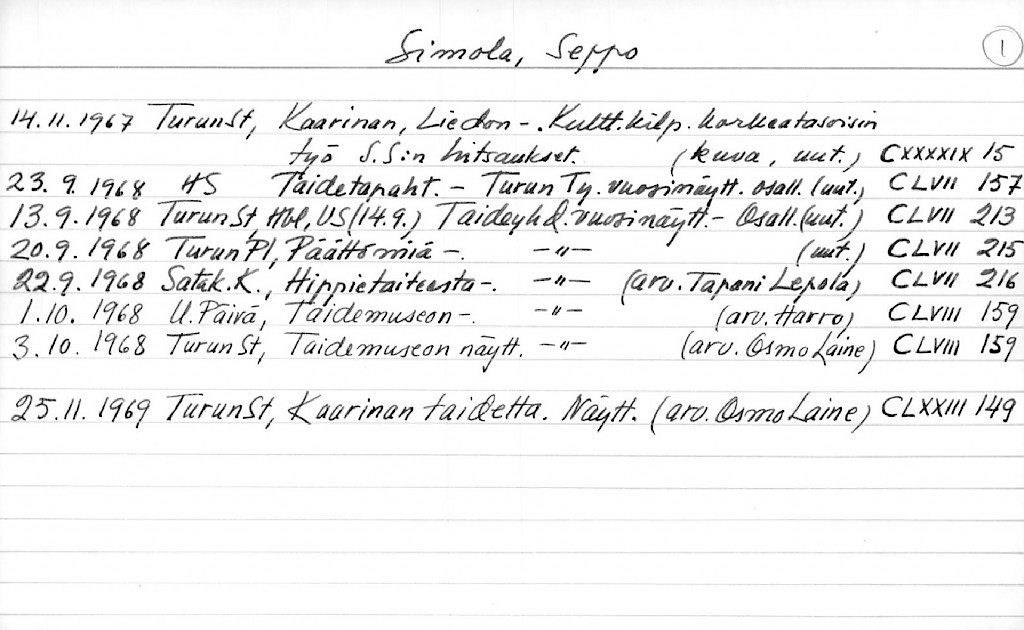 Simola, Seppo 1
14.11.1967 TurunSt, Kaarinan, Liedon -. Kultt.kilp. korkeatasoisin
työ S.S:n hitsaukset. (kuva, uut.) CXXXXIX 15
23. 9. 1968 HS Taidetapaht. - Turun Ty. vuosinäytt. osall. (uut.) CLVII 157
13.9.1968 TurunSt, Hbl, US (14.9.) Taideyhd. vuosinäytt. - Osall. (uut.) CLVII 213
20.9.1968 TurunPl, Päättömiä -. -"- (uut.) CLVII 215
22.9.1968 Satak.K., Hippietaiteesta -. -"- (arv. Tapani Lepola) CLVII 216
1.10.1968 U.Päivä, Taidemuseon -. -"- (arv. Harro) CLVIII 159
3.10.1968 TurunSt, Taidemuseon näytt. -"- (arv. Osmo Laine) CLVIII 159
25.11.1969 TurunSt, Kaarinan taidetta. Näytt. (arv. Osmo Laine) CLXXIII 149